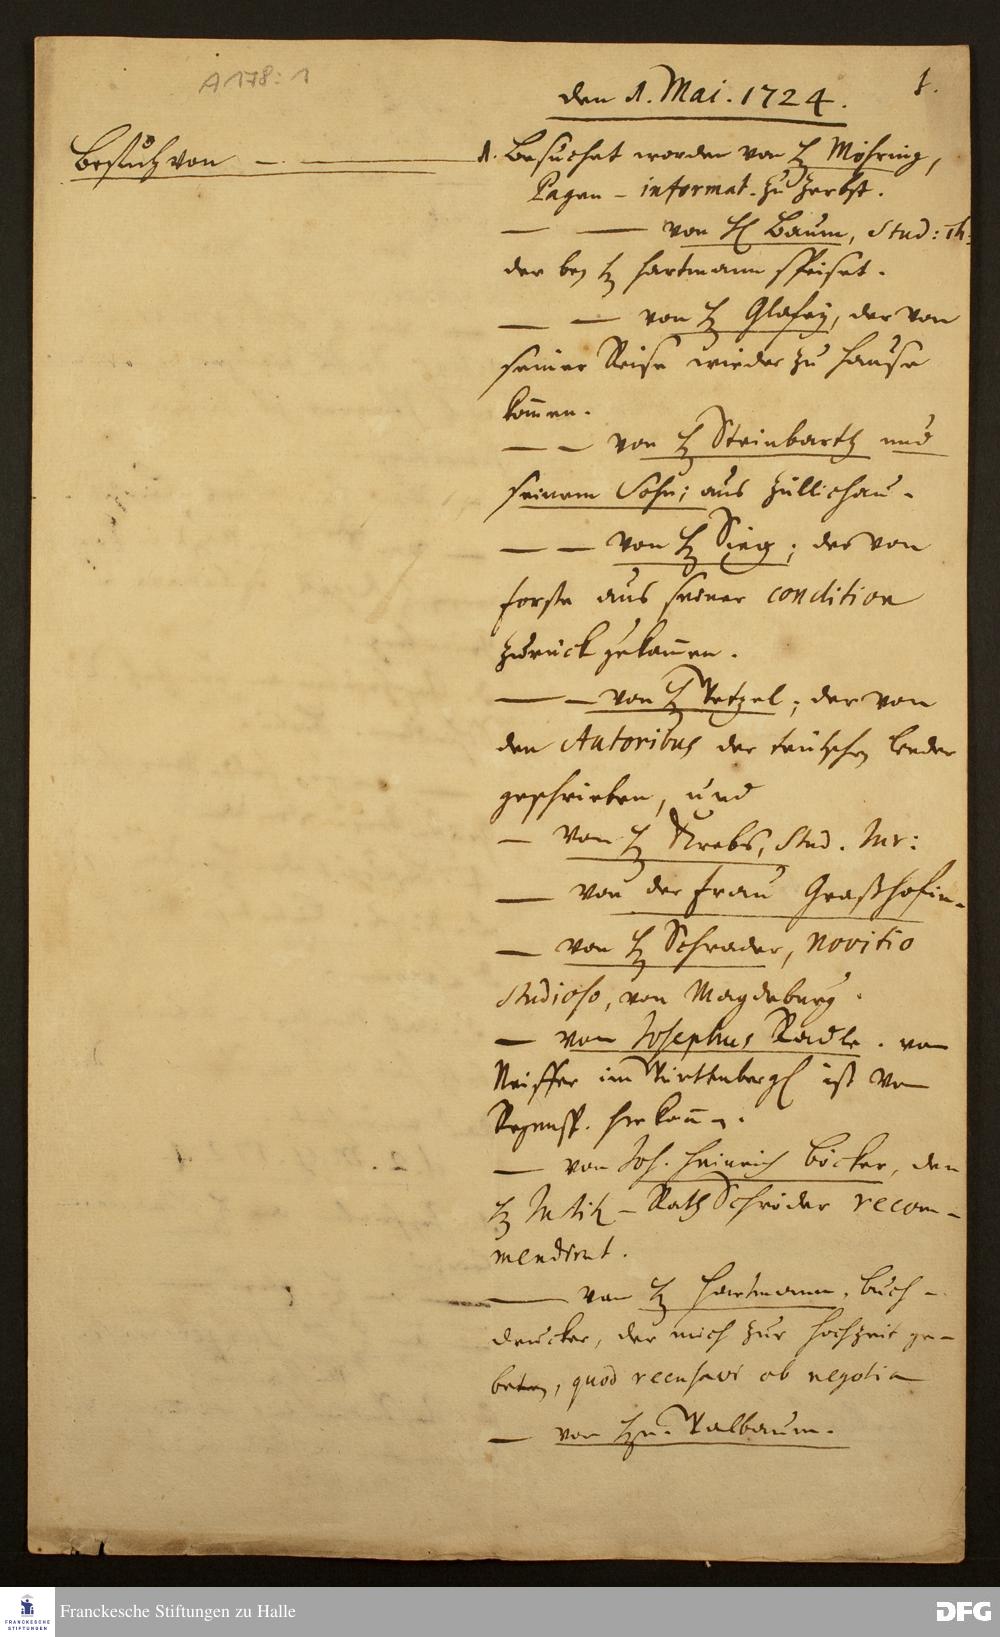 A 178: 1
1.
den 1. Mai. 1724.
Besuch von
1. Besuchet worden von H. Möhring,
Pagen-informat. zu Zerbst.
von H. Baum, Stud: Th:
der bey H. Hartmann speiset.
von H. Glafey, der von
seiner Reise wieder zu Hause
kom̄en.
von H. Steinbarth und
seinem Sohn; aus Züllichau.
von H. Sieg; der von
Forste aus seiner condition
zurück gekom̄en.
von H. Wetzel; der von
den Autoribus der teutschen Lieder
geschrieben, und
von H. Krebs, Stud. Jur:
von der Frau Graßhofin.
von H. Schrader, novitio
studioso, von Magdeburg.
von Josephus Radle. von
Neiffer im Würtenberg. ist von
Regensp. her kom̄en.
von Joh. Heinrich Böcker, den
H. Justiz-Rath Schröder recom-
mendiret.
von H. Hartmann, Buch-
drucker, der mich zur Hochzeit ge-
beten, quod recusavi ob negotia
von Hn. Walbaum.
FRANCKESCHE STIFTUNGEN
Franckesche Stiftungen zu Halle
DFG